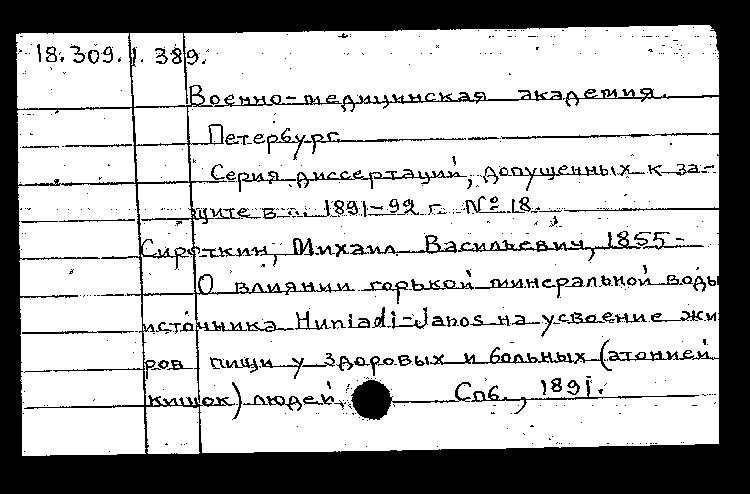 18.309.1.389.
Военно-медицинская академия.
Петербург.
Серия диссертаций, допущенных к за-
щите в п. 1891-92 г. № 18.
Сироткин, Михаил Васильевич, 1855-
О влиянии горькой минеральной воды
источника Huniadi-Janos на усвоение жи
ров пищи у здоровых и больных (атонией
кишок) людей. Спб., 1891.